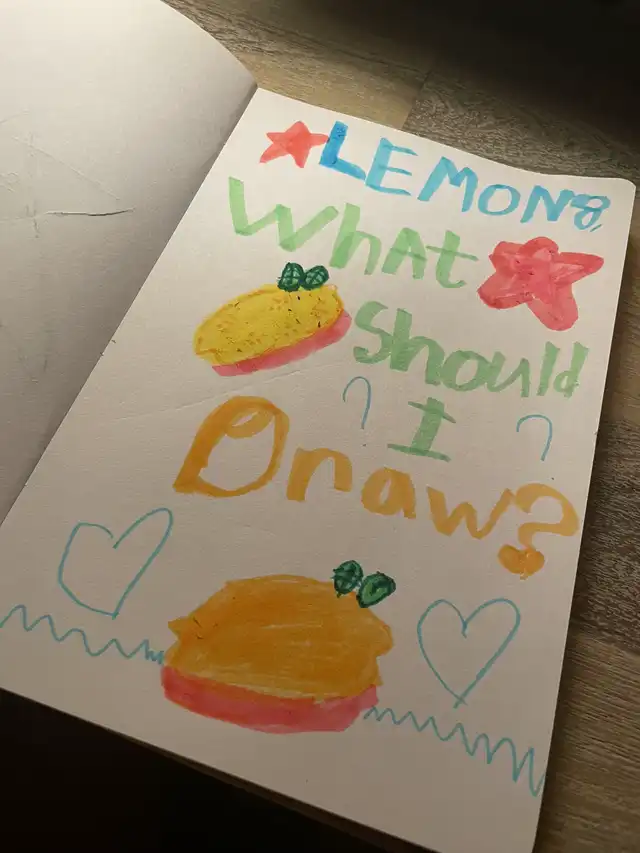 LEMONS,
What
Should
I
Draw?